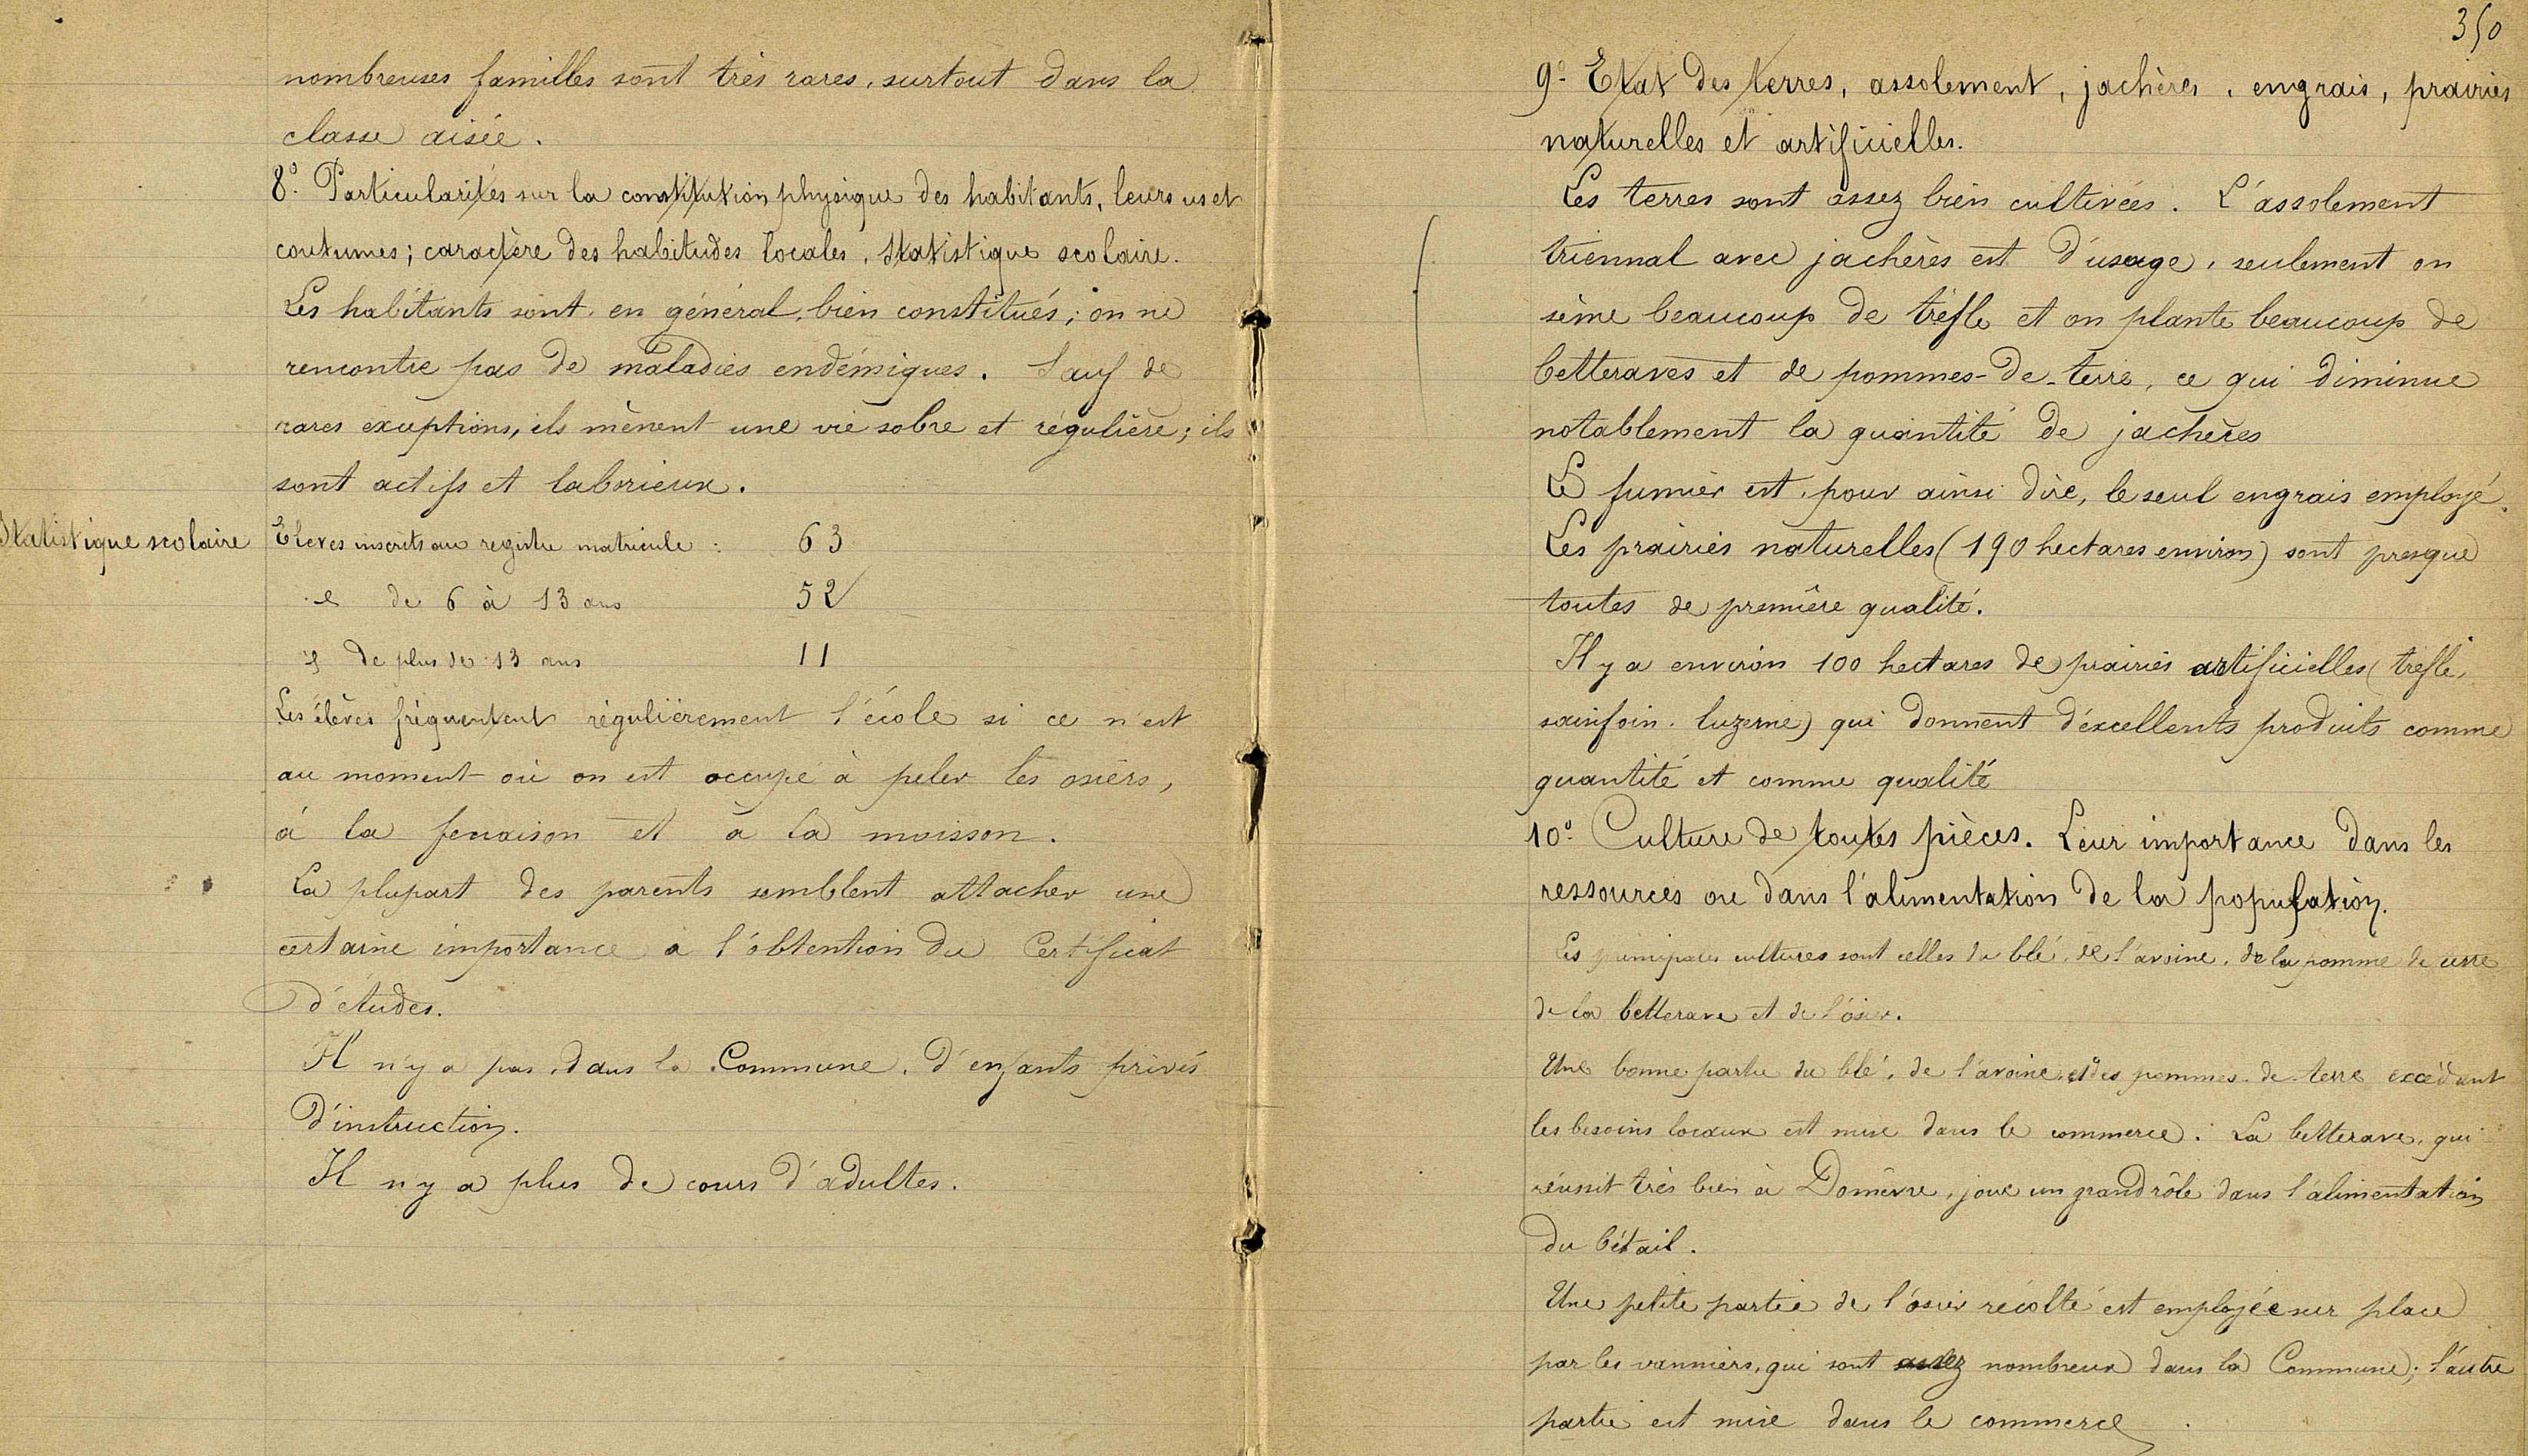 nombreuses familles sont très rares, surtout dans la
classe aisée.
8º Particularités sur la constitution physique des habitants, leurs us et
coutumes; caractère des habitudes locales, Statistique scolaire.
Les habitants sont, en général, bien constitués; on ne
rencontre pas de maladies endémiques. Sauf de
rares exceptions, ils mènent une vie sobre et régulière; ils
sont actifs et laborieux.
Statistique scolaire Elèves inscrits au registre matricule : 63
de 6 à 13 ans 52
de plus de 13 ans 11
Les élèves fréquentent régulièrement l'école si ce n'est
au moment où on est occupé à peler les osiers,
à la fenaison et à la moisson.
La plupart des parents semblent attacher une
certaine importance à l'obtention du Certificat
d'études.
Il n'y a pas, dans la Commune, d'enfants privés
d'instruction.
Il n'y a plus de cours d'adultes.
350
9º Etat des terres, assolement, jachères, engrais, prairies
naturelles et artificielles.
Les terres sont assez bien cultivées. L'assolement
triennal avec jachères est d'usage, seulement on
sème beaucoup de trèfle et on plante beaucoup de
betteraves et de pommes-de-terre, ce qui diminue
notablement la quantité de jachères
Le fumier est, pour ainsi dire, le seul engrais employé.
Les prairies naturelles (190 hectares environ) sont presque
toutes de première qualité.
Il y a environ 100 hectares de prairies artificielles (trèfle,
sainfoin, luzerne) qui donnent d'excellents produits comme
quantité et comme qualité
10º Culture de toutes pièces. Leur importance dans les
ressources ou dans l'alimentation de la population.
Les principales cultures sont celles du blé, de l'avoine, de la pomme de terre
de la betterave et de l'osier.
Une bonne partie du blé, de l'avoine, et des pommes-de-terre excédant
les besoins locaux est mise dans le commerce. La betterave, qui
réussit très bien à Domèvre, joue un grand rôle dans l'alimentation
du bétail.
Une petite partie de l'osier récolté est employée sur place
par les vanniers, qui sont assez nombreux dans la Commune; l'autre
partie est mise dans le commerce